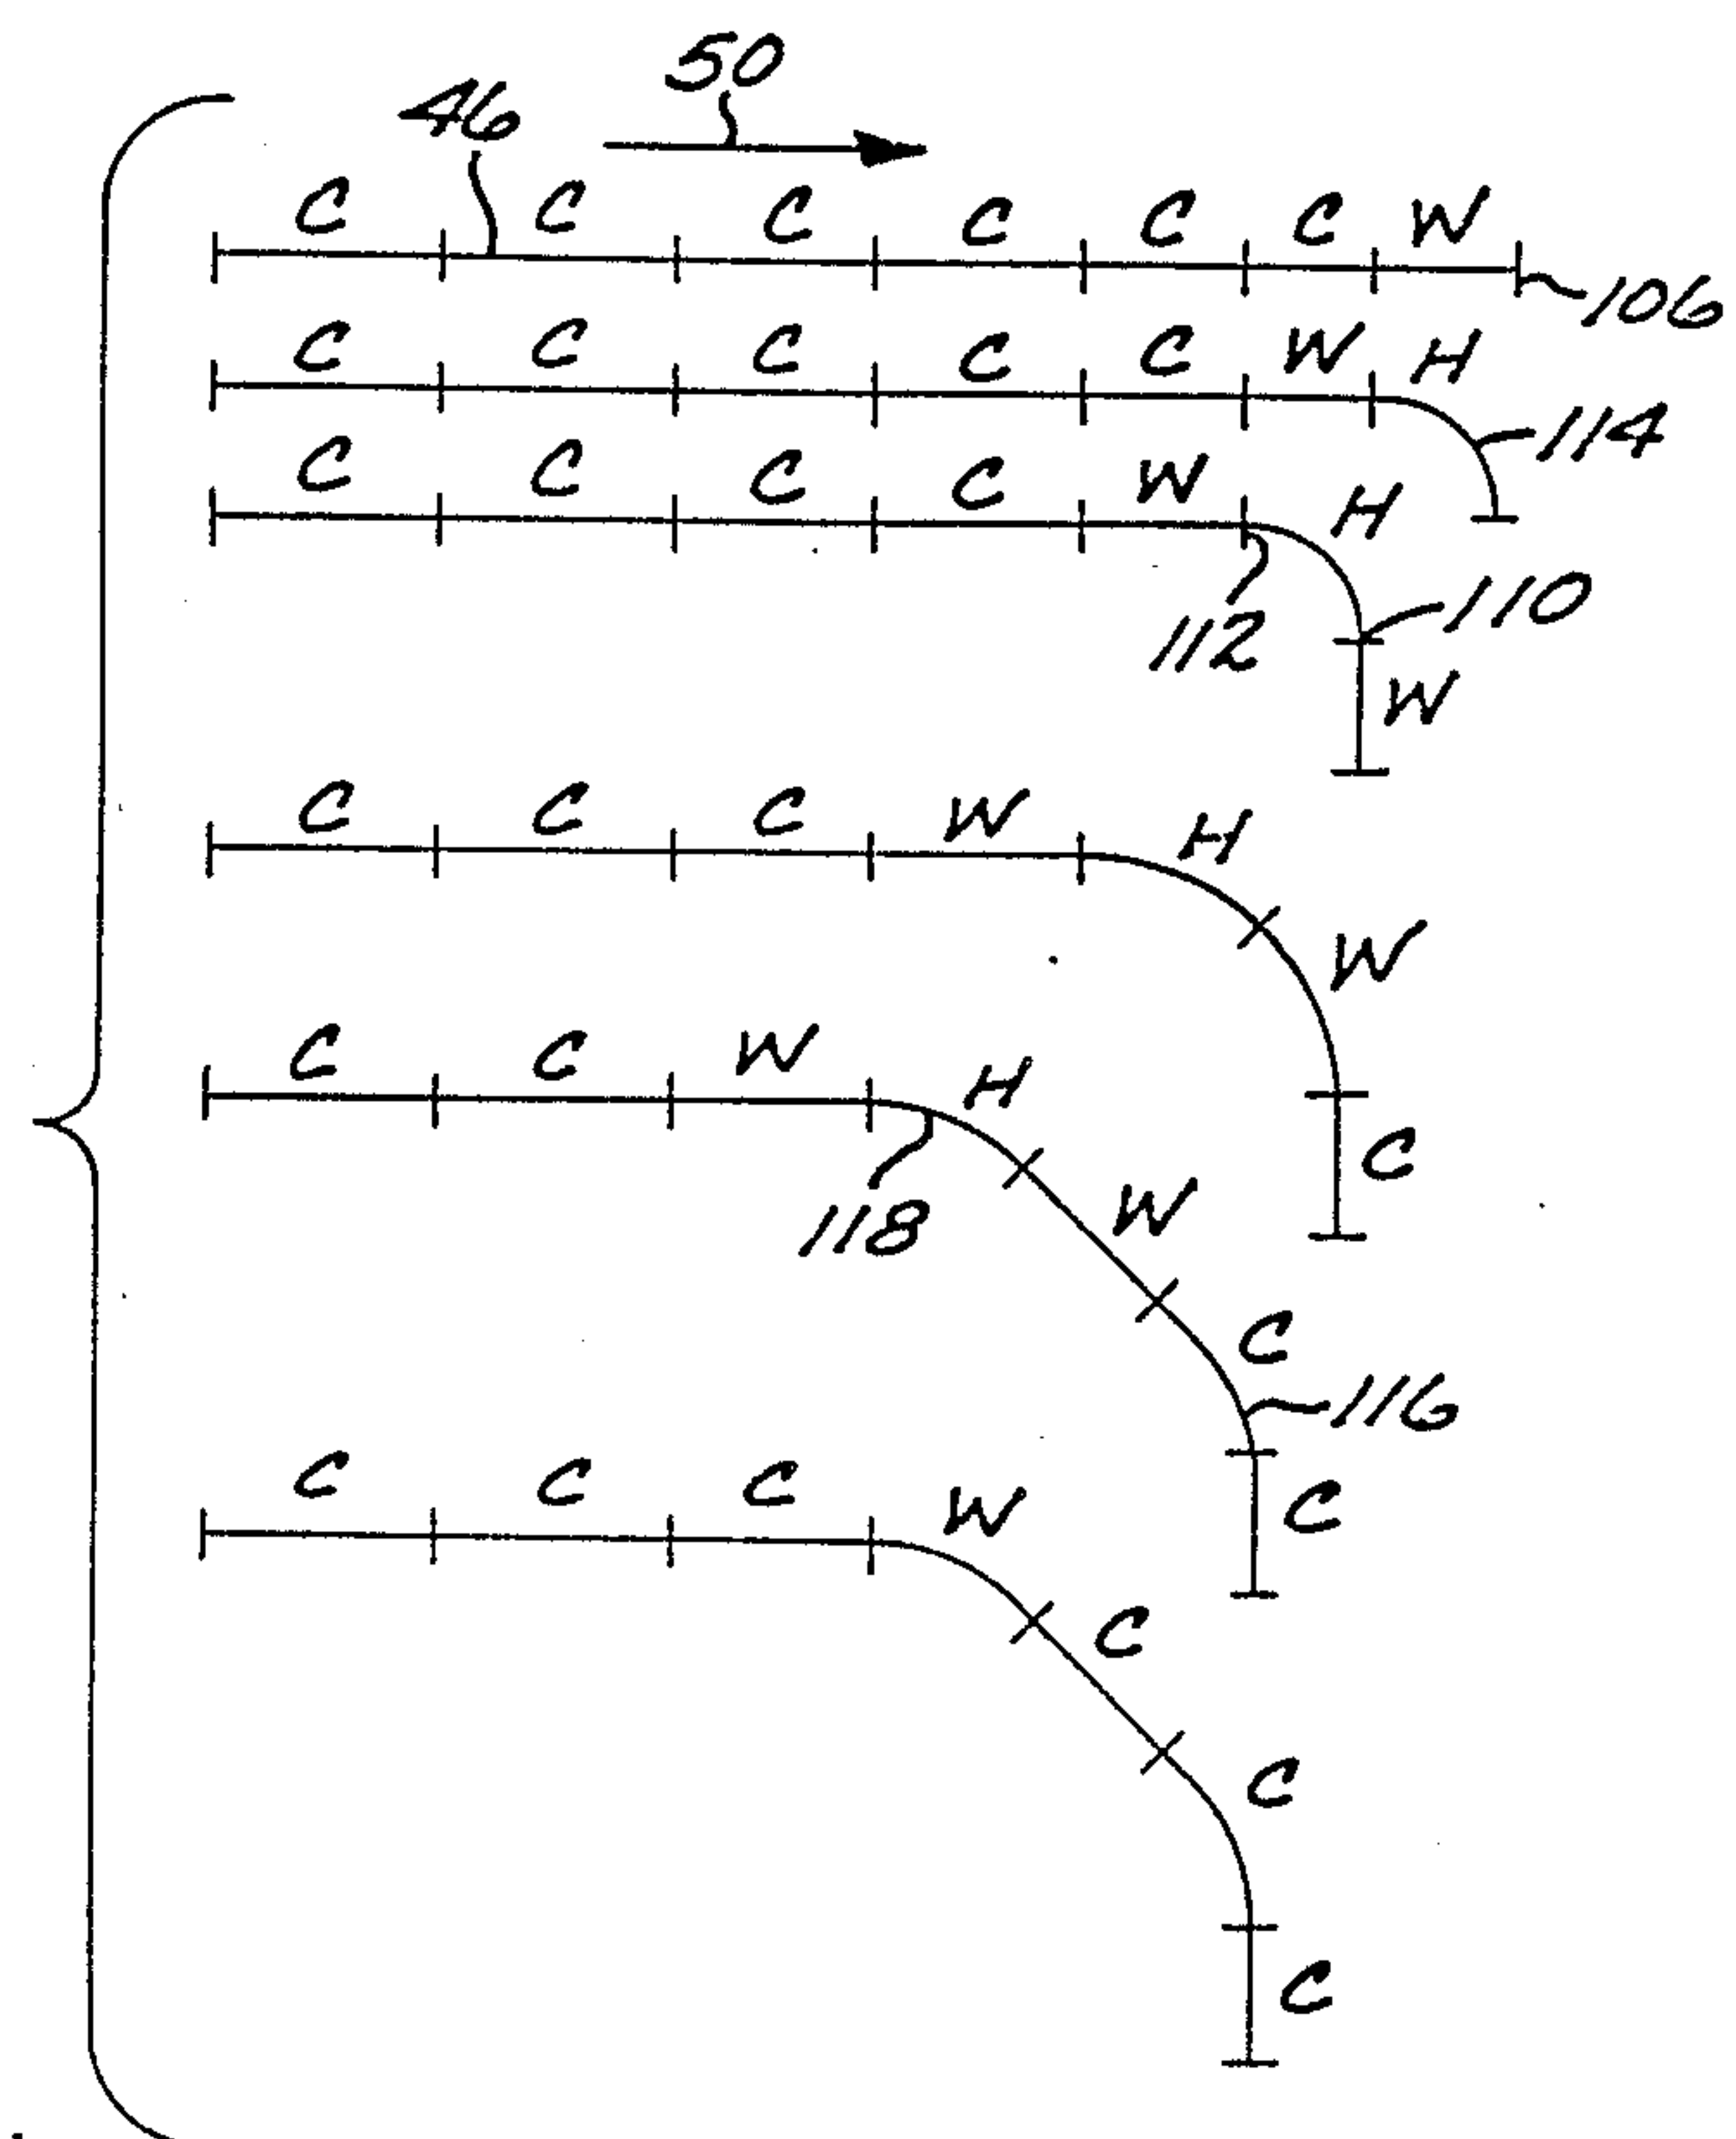 50
46
C C C C C C W
106
C C C C C W H
114
C C C C W H
110
112
W
C C C W H
W
C C W H
C
W
118
C
116
C C C W
C
C
C
C